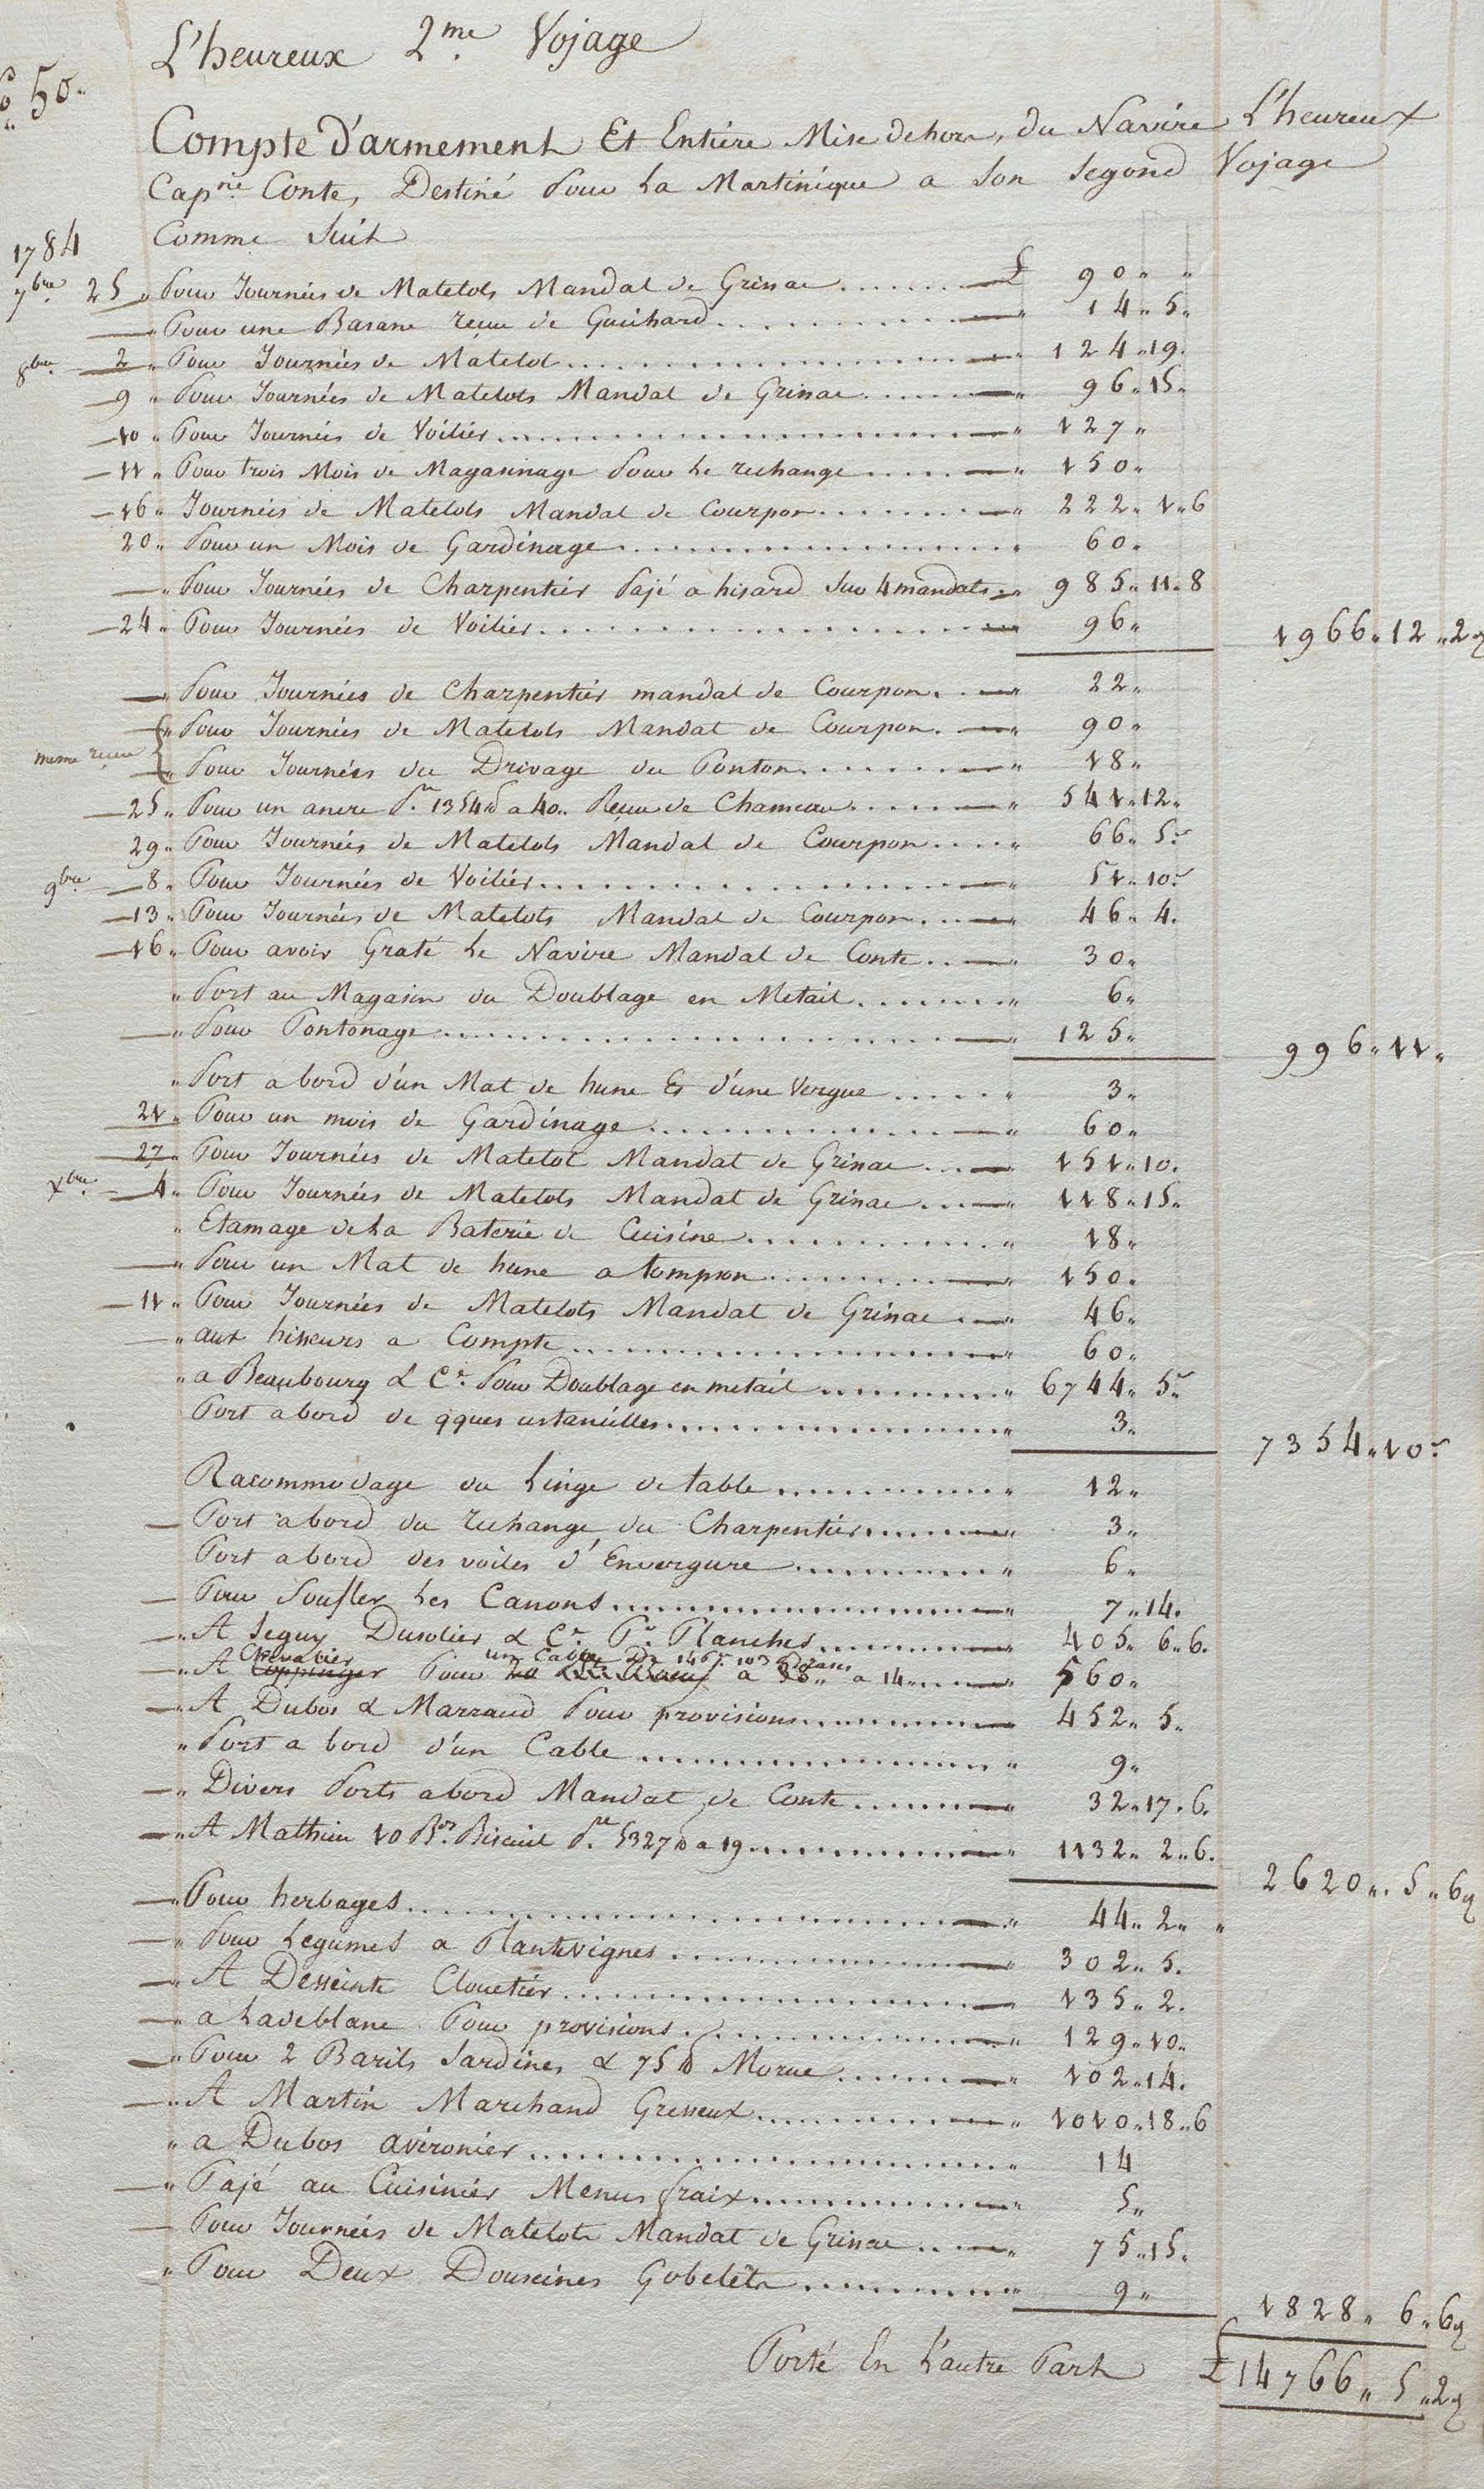 L'heureux 2.me Vojage
50.
Compte D'armement Et Entiére Mise dehors, du Navire L'heureux
Cap.ne Conte, Destiné Pour La Martinique a Son Segond Vojage
Comme Suit
1784
7bre 25 " Pour Journées de Matelots Mandat de Grinac ........ £ 90 " "
" Pour une Basane reçue de Guichard ........ " 14 " 5 "
8bre 2 " Pour Journées de Matelot ........ " 124 " 19.
9 " Pour Journées de Matelots Mandat de Grinac ........ " 96 " 15 "
10 " Pour Journées de Voilier ........ " 127 "
11 " Pour trois Mois de Magasinage Pour Le rechange ........ " 150 "
16 " Journées de Matelots Mandat de Courpon ........ " 222 " 1 " 6
20 " Pour un Mois de Gardinage ........ " 60 "
" Pour Journées de Charpentier Pajé a hisard Sur 4 mandats .. " 985 " 11 " 8
24 " Pour Journées de Voilier ........ " 96 "
1966 " 12 " 2
" Pour Journées de Charpentier mandat de Courpon .. " 22 "
" Pour Journées de Matelots Mandat de Courpon .. " 90 "
meme reçu " Pour Journées du Drivage du Ponton ........ " 18 "
25 " Pour un ancre P.nt 1354 lb a 40 .. Reçue de Chameau ........ " 541 " 12 "
29 " Pour Journées de Matelots Mandat de Courpon .... " 66 " 5 "
9bre 8 " Pour Journées de Voilier ........ " 51 " 10 "
13 " Pour Journées de Matelots Mandat de Courpon .... " 46 " 4.
16 " Pour avoir Graté Le Navire Mandat de Conte .. " 30 "
" Port au Magasin du Doublage en Metail ........ " 6 "
" Pour Pontonage ........ " 125 "
996 " 11 "
" Port a bord d'un Mat de hune Et d'une Vergue ...... " 3 "
21 " Pour un mois de Gardinage ........ " 60 "
27 " Pour Journées de Matelot Mandat de Grinac .... 151 " 10.
Xbre 4 " Pour Journées de Matelots Mandat de Grinac .... " 118 " 15 "
" Etamage de La Baterie de Cuisine ........ " 18 "
" Pour un Mat de hune a tompson ........ " 150.
11 " Pour Journées de Matelots Mandat de Grinac .. " 46 "
" aux hisseurs a Compte ........ " 60 "
" a Beaubourg & C.e Pour Doublage en metail ........ " 6744 " 5 "
Port a bord de qques ustancilles ........ " 3 "
7354 " 10 "
Racommodage du Linge de table ........ " 12 "
Port a bord du rechange du Charpentier ........ " 3 "
Port a bord des voiles d'Envergure ........ " 6 "
Pour Soufler Les Canons ........ " 7 " 14.
" A Seguy Dusolier & C.e P.r Planches ........ " 405 " 6 " 6.
" A Chevalier Pour un Cable De a 14 ........ " 560 "
" A Dubos & Marraud Pour provisions ........ 452 " 5 "
" Port a bord d'un Cable ........ " 9 "
" Divers Ports abord Mandat de Conte ........ " 32 " 17 . 6.
" A Mathieu 10 B.es Biscuit P.nt 5327 lb a 19 ........ " 1132 " 2 " 6.
2620 " . 5 " 6
" Pour herbages ........ " 44 " 2 " "
" Pour Legumes a Plantevignes ........ " 302 " 5.
" A Desseinte Cloutier ........ 135 " 2.
" a Ladeblane Pour provisions ........ " 129 " 10 "
" Pour 2 Barils Sardines & 75 lb Morue ........ " 102 " 14.
" A Martin Marchand Gresseux ........ " 1010 " 18 " 6
" a Dubos avironier ........ " 14
" Pajé au Cuisinier Menus fraix ........ " 5 "
Pour Journées de Matelots Mandat de Grinac .... " 75 " 15 "
" Pour Deux Douzeines Gobelets ........ " 9 "
1828 " 6 " 6
Porté En L'autre Part £ 14766 " 5 " 2